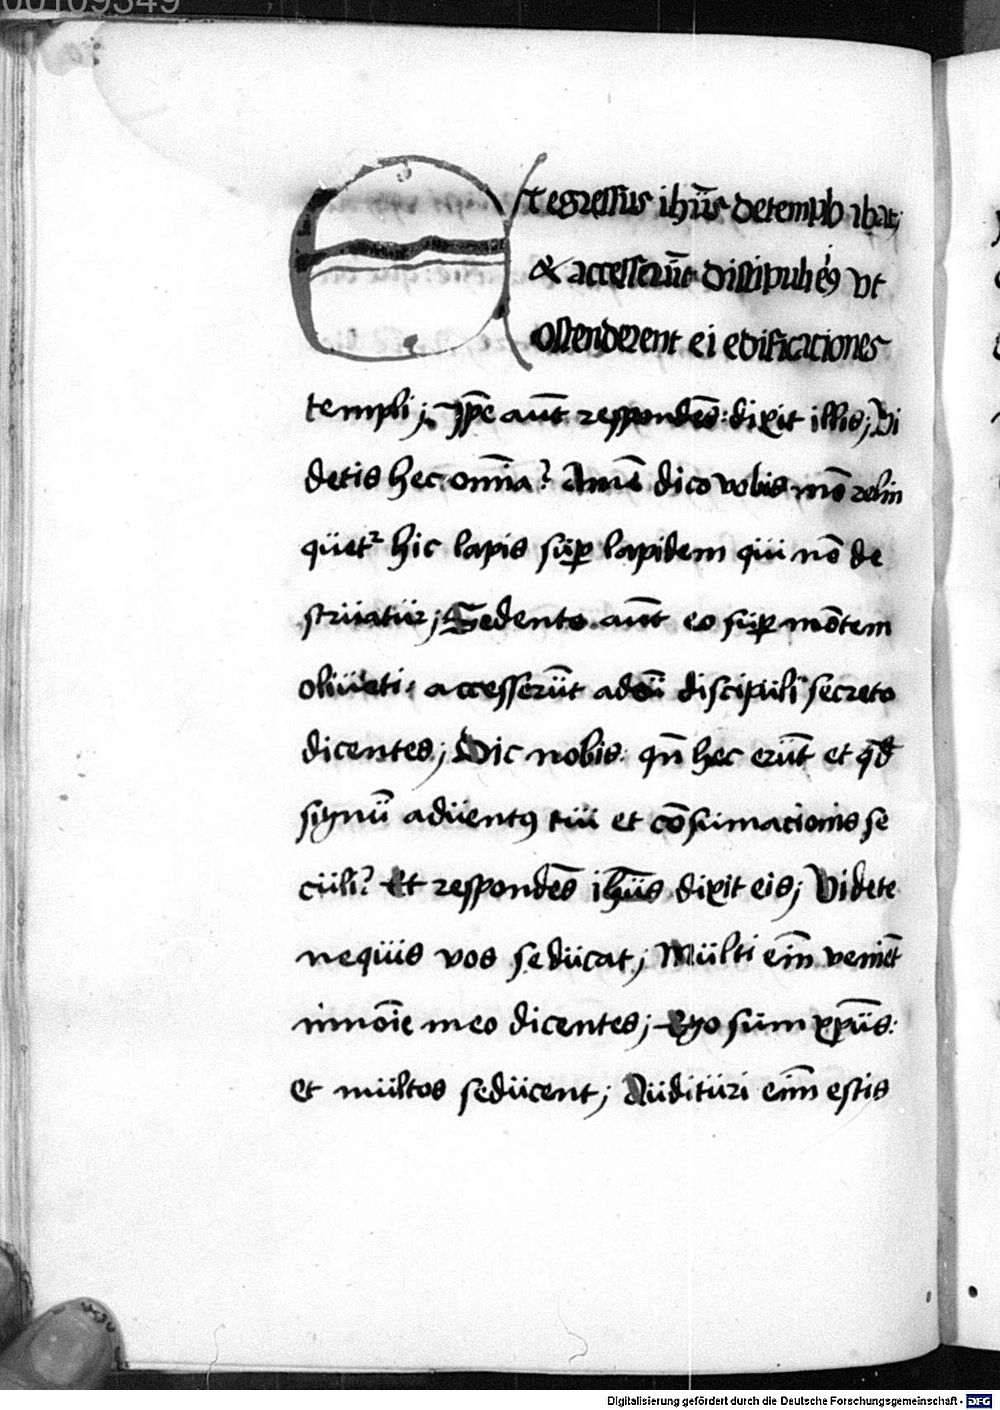 00109349
Et egressus ihūs de templo ibat;
& accesserūt discipuli eiꝰ vt
ostenderent ei edificaciones
templi; Ip̄e aūt respondēs: dixit illis; Vi
detis hec om̄ia? Amē dico vobis nō relin
quet᷑ hic lapis sup̄ lapidem qui nō de
struatur; Sedente aūt eo sup̄ mōtem
oliueti: accesserūt ad eū discipuli secreto
dicentes; Dic nobis: qn̄ hec erūt et qd̄
signū aduentꝰ tui et cōsumacionis se
culi? Et respondēs ihūs dixit eis; Videte
nequis vos seducat; Multi eīm veniēt
in noīe meo dicentes; Ego sum xp̄us:
et multos seducent; Audituri eīm estis
Digitalisierung gefördert durch die Deutsche Forschungsgemeinschaft - DFG